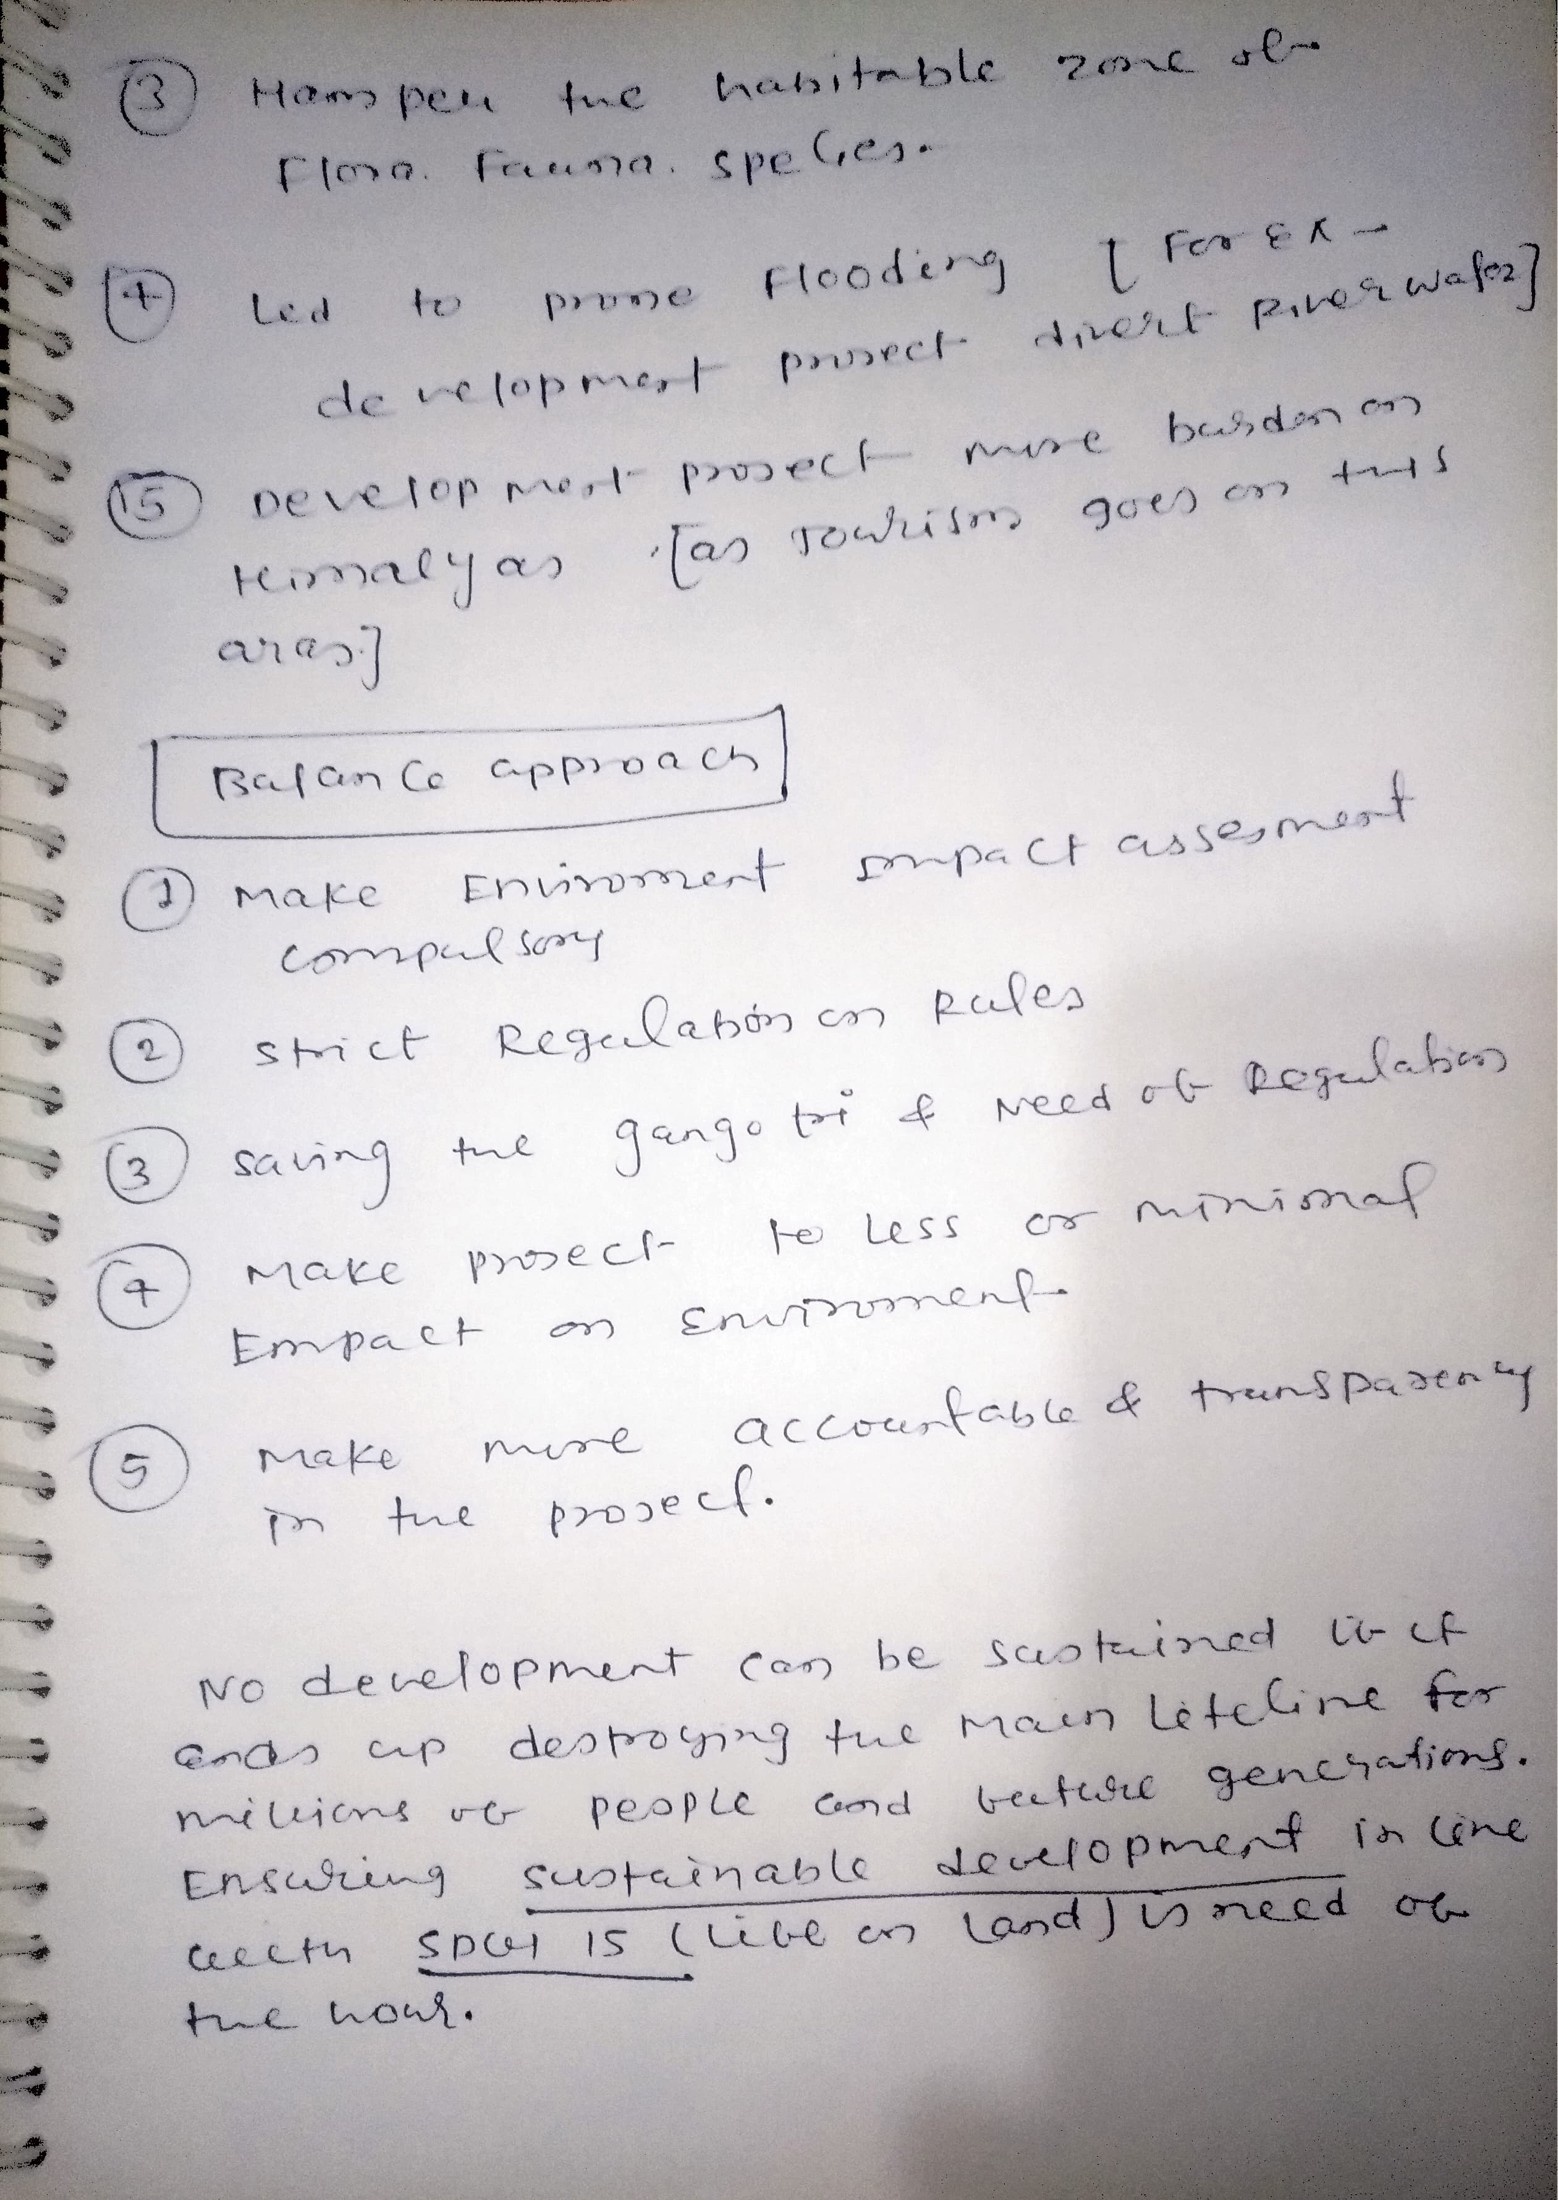 ③ Hamper the habitable zone of
Flora. Fauna. species.
④ Led to prone flooding [For Ex-
development project divert River water]
⑤ Development project more burden on
Himalyas [as Tourism goes on this
aras]
Balance approach
① Make Enviroment Impact assesment
compulsory
② Strict Regulation on Rules
③ Saving the gangotri & Need of Regulation
④ Make project to Less or minimal
Empact on Enviroment.
⑤ Make more accountable & transparency
in the project.
No development can be sustained if it
ends up destroying the main lifeline for
millions of people and future generations.
Ensuring sustainable development in line
with SDG 15 (Life on Land) is need of
the hour.